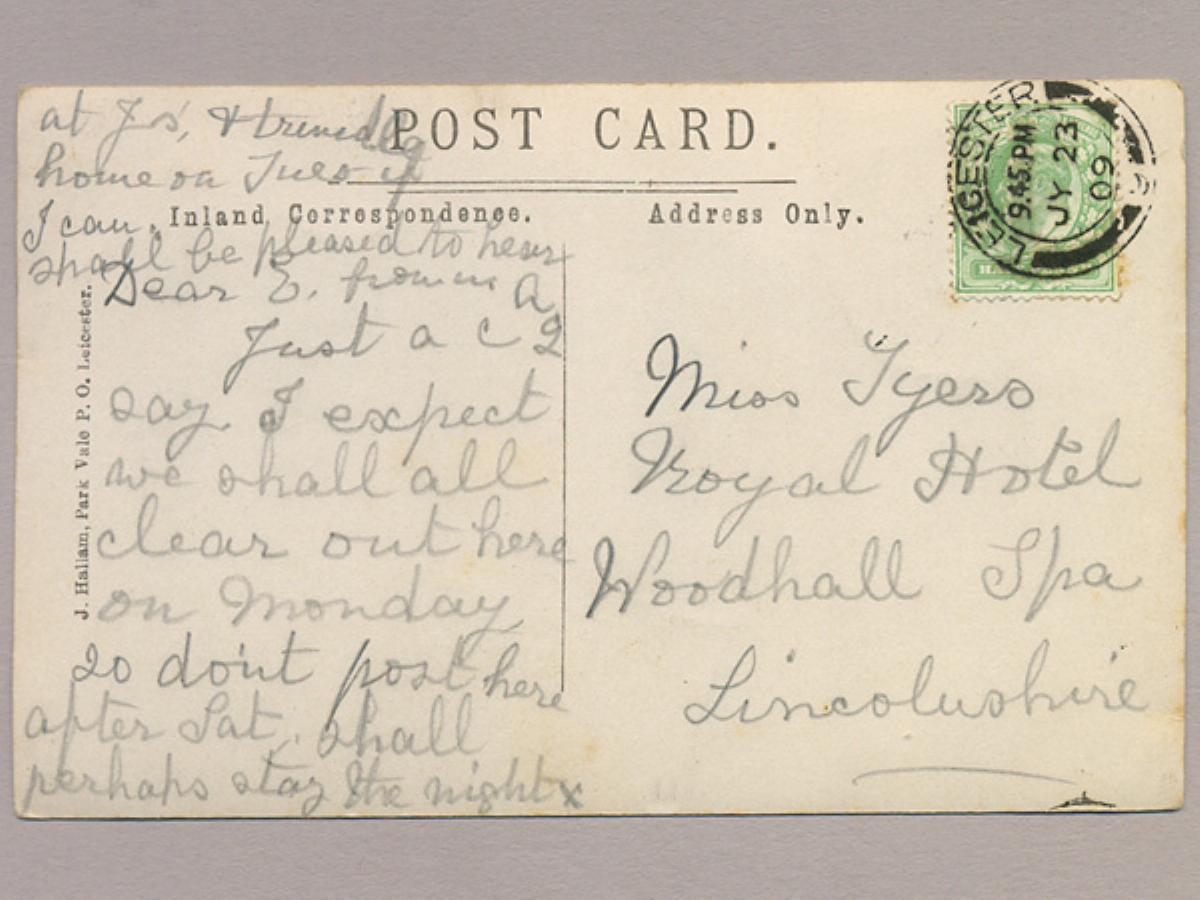 at Jo's, &
POST CARD.
home on Tues if
I can.
Inland Correspondence.
Address Only.
shall be pleased to hear
from
LEICESTER
9.45.PM
JY 23
09
HA
J. Hallam, Park Vale P. O. Leicester.
Dear E.
Just a C 2
say I expect
we shall all
clear out here
on Monday
so dont post here
after Sat, shall
perhaps stay the night x
Miss Tyers
Royal Hotel
Woodhall Spa
Lincolnshire